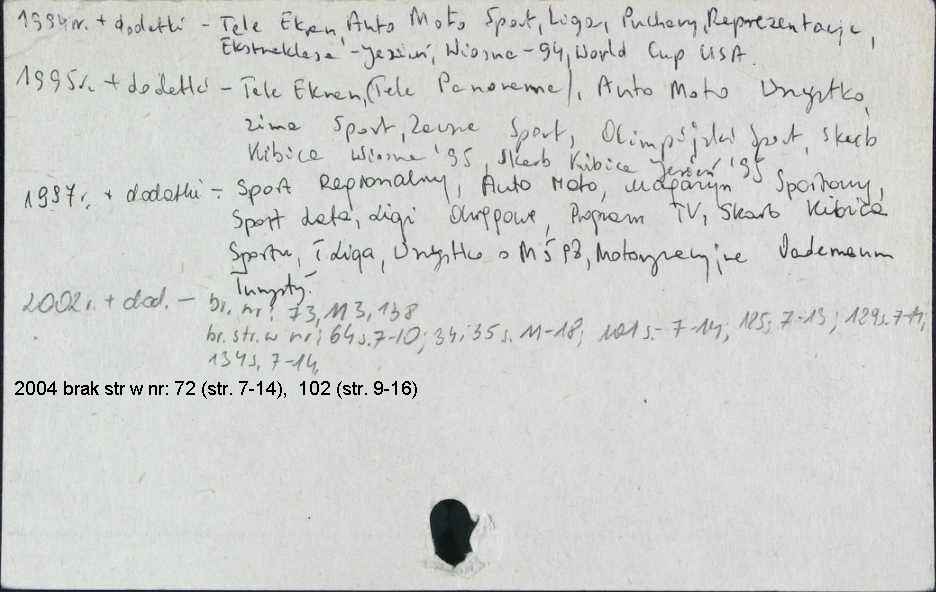 1994r. + dodatki - Tele Ekran, Auto Moto Sport, Liga, Puchary, Reprezentacje,
Ekstraklasa - Jesień, Wiosna - 94, World Cup USA.
1995r. + dodatki - Tele Ekran, (Tele Panorama), Auto Moto Wszystko,
zima Sport, Zawsze Sport, Olimpijski Sport, Skarb
Kibica Wiosna '95, Skarb Kibica Jesień '95
1997r. + dodatki - Sport Regionalny, Auto Moto, Magazyn Sportowy,
Sport lata, Ligi Okręgowe, Program TV, Skarb Kibica
Sportu, I Liga, Wszystko o MŚ 98, Motoryzacyjne Vademecum
Turysty.
2002r. + dod. - br. nr: 73, 113, 138
br. str. w nr: 64 s. 7-10; 34; 35 s. 11-18; 101 s. 7-14; 125; 7-13; 129 s. 7-14;
134 s. 7-14,
2004 brak str w nr: 72 (str. 7-14), 102 (str. 9-16)